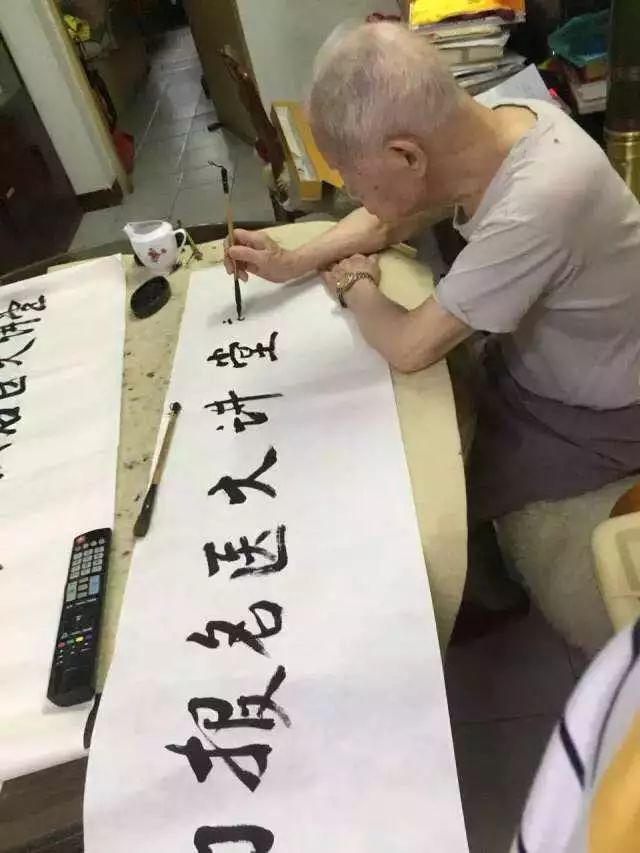 名医大讲堂
报名医大讲堂